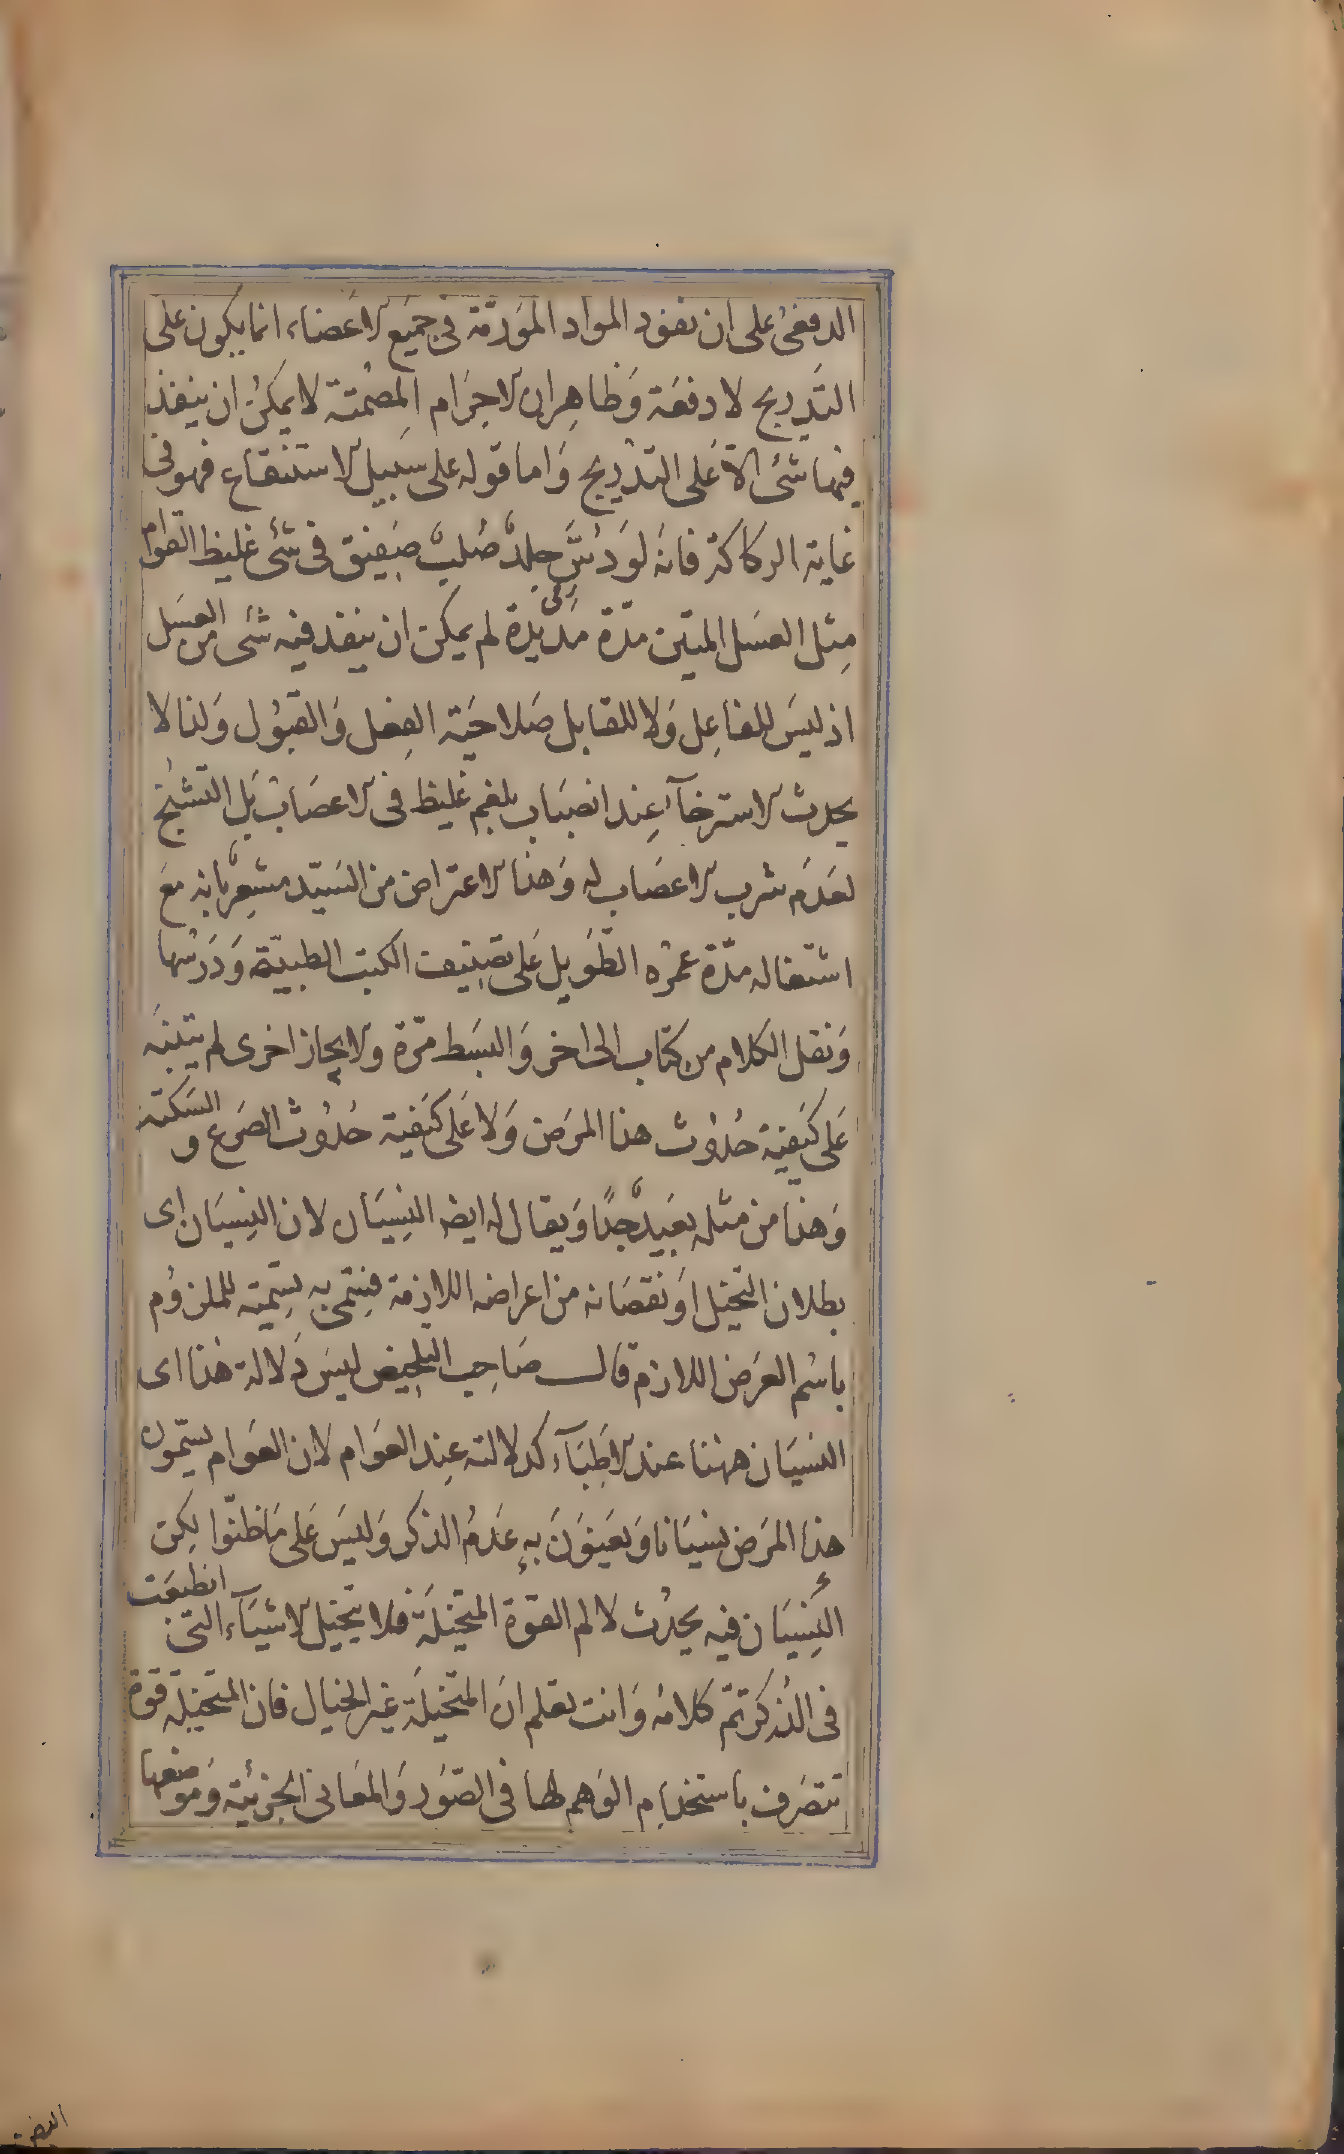 الدفعىُ على ان نفوذ المواد المَورّمة فى جميَع الاعَضاء انما يكون على
التَدريج لا دفعَة وَظاهِران الاجرَام المصُمتة لا يمكنُ ان ينفذ
فيها شئ الاّ عَلى التدريج وَاما قوله على سَبيل الاستنقاع فهو فى
غاية الركاكة فانهَ لوَ دُسَّ جلدٌ صُلبٌ صَفيق فى شئ غليظ القوام
مِثل العسَل المتين مدّة مَديدة لم يمكن ان ينفذ فيه شئ من العسَل
اذ ليسَ للفاعِل وَلا للقابل صَلاحيَة الفِعل وَالقبُول وَلذا لا
يحدث الاسترخآء عِند انصبَاب بلغم غليظ فى الاعصَاب بَل التشنُج
لعَدَم شرب الاعصَاب له وَهذا الاعتراض من السَيّد مشعِرٌ بانه معَ
اشتغاله مدّة عمرُه الطّوَيل عَلى تصنيف الكتب الطبيّة وَدَرسُها
وَنقل الكلام من كتاب الى اخر وَالبسَط مرّة والايجاز اخرى لم يتنبَه
عَلى كيَفية حُدوُث هذا المرَض وَلا عَلى كيَفية حَدوُث الصَرع و السَكتة
وَهذا من مثله بعَيدٌ جدًا وَيقال له ايضا النِسيَان لان النِسيَان اى
بطلان التخيل اوَ نقصَانه من اعراضه اللازمة فيسَمّى به تسِمية للملزوُم
باسُم العَرَض اللازم قال صَاحِب التلخيص ليسَ دَلالة هَذا اى
النسيَان ههُنا عند الاطِبَآء كدلالته عِند العوَام لان العوَام يسَمّون
هذا المرَض نسِيَانا وَيعَنوُنَ بهِ عَدمُ الذكر وَليسَ عَلى مَا ظنّوا لكِن
النِسيَان فيه يحدُث لالم القوّة المتخيّلَة فلا يتخيل الاشيَآء التى انطبعَت
فى الذُكر تمّ كلامُه وَانت تعَلم انَ المتخيلَة غيَر الخيال فان المتخيلة قوة
تتصَرف باستخدام الوَهم لها فى الصّوَر وَالمَعَانى الجُزئية وَموَضعها